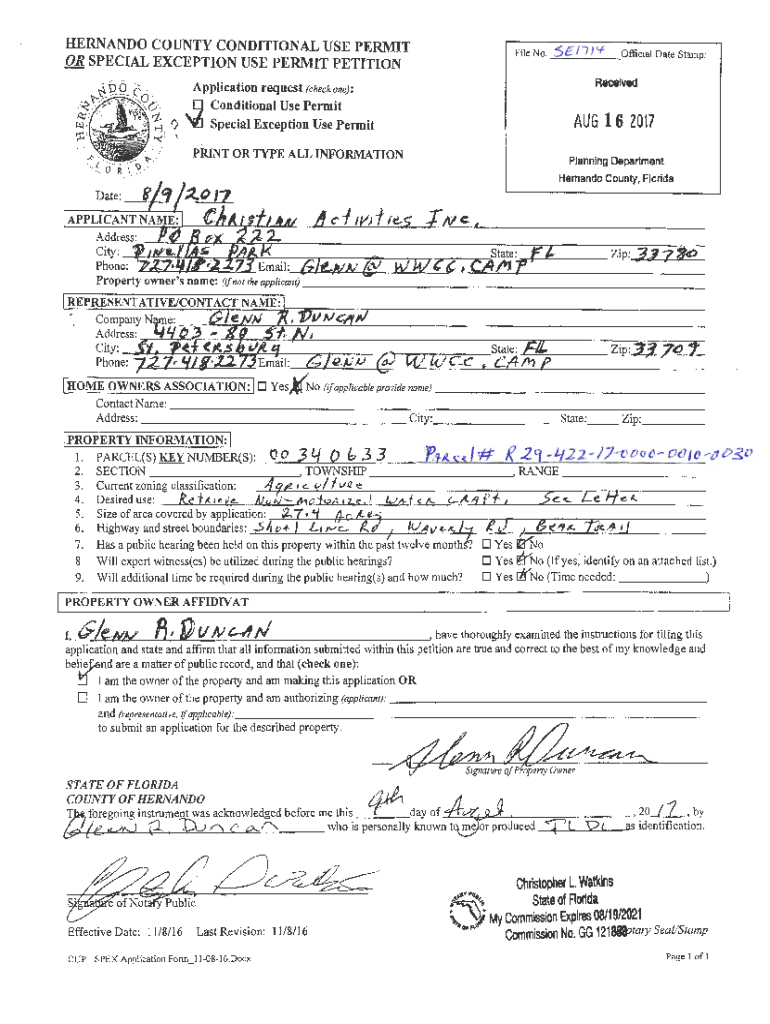 HERNANDO COUNTY CONDITIONAL USE PERMIT
OR SPECIAL EXCEPTION USE PERMIT PETITION
File No. SE1714 Official Date Stamp:
Received
AUG 16 2017
Planning Department
Hernando County, Florida
HERNANDO COUNTY
FLORIDA
Application request (check one):
☐ Conditional Use Permit
☑ Special Exception Use Permit
PRINT OR TYPE ALL INFORMATION
Date: 8/9/2017
APPLICANT NAME: Christian Activities Inc.
Address: PO Box 222
City: Pinellas Park State: FL Zip: 33780
Phone: 727-418-2273 Email: Glenn@WWCC.CAMP
Property owner's name: (if not the applicant)
REPRESENTATIVE/CONTACT NAME:
Company Name: Glenn R. Duncan
Address: 4403 - 80 St. N.
City: St. Petersburg State: FL Zip: 33709
Phone: 727-418-2273 Email: Glenn@WWCC.CAMP
HOME OWNERS ASSOCIATION: ☐ Yes ☒ No (if applicable provide name)
Contact Name:
Address: City: State: Zip:
PROPERTY INFORMATION:
1. PARCEL(S) KEY NUMBER(S): 00340633 Parcel# R29-422-17-0000-0010-0030
2. SECTION , TOWNSHIP , RANGE
3. Current zoning classification: Agriculture
4. Desired use: Retrieve Non-motorized water craft, See Letter
5. Size of area covered by application: 27.4 Acres
6. Highway and street boundaries: Shoal Line Rd, Waverly Rd, Bear Trail
7. Has a public hearing been held on this property within the past twelve months? ☐ Yes ☑ No
8 Will expert witness(es) be utilized during the public hearings? ☐ Yes ☑ No (If yes, identify on an attached list.)
9. Will additional time be required during the public hearing(s) and how much? ☐ Yes ☑ No (Time needed: )
PROPERTY OWNER AFFIDIVAT
I, Glenn R. Duncan, have thoroughly examined the instructions for filing this
application and state and affirm that all information submitted within this petition are true and correct to the best of my knowledge and
belief and are a matter of public record, and that (check one):
☑ I am the owner of the property and am making this application OR
☐ I am the owner of the property and am authorizing (applicant):
and (representative, if applicable):
to submit an application for the described property.
Glenn R Duncan
Signature of Property Owner
STATE OF FLORIDA
COUNTY OF HERNANDO
The foregoing instrument was acknowledged before me this 9th day of August, 2017, by
Glenn R. Duncan who is personally known to me or produced FL DL as identification.
Signature of Notary Public
Christopher L. Watkins
State of Florida
My Commission Expires 08/19/2021
Commission No. GG 121 Notary Seal/Stamp
Effective Date: 11/8/16 Last Revision: 11/8/16
CUP SPEX Application Form_11-08-16.Docx Page 1 of 1